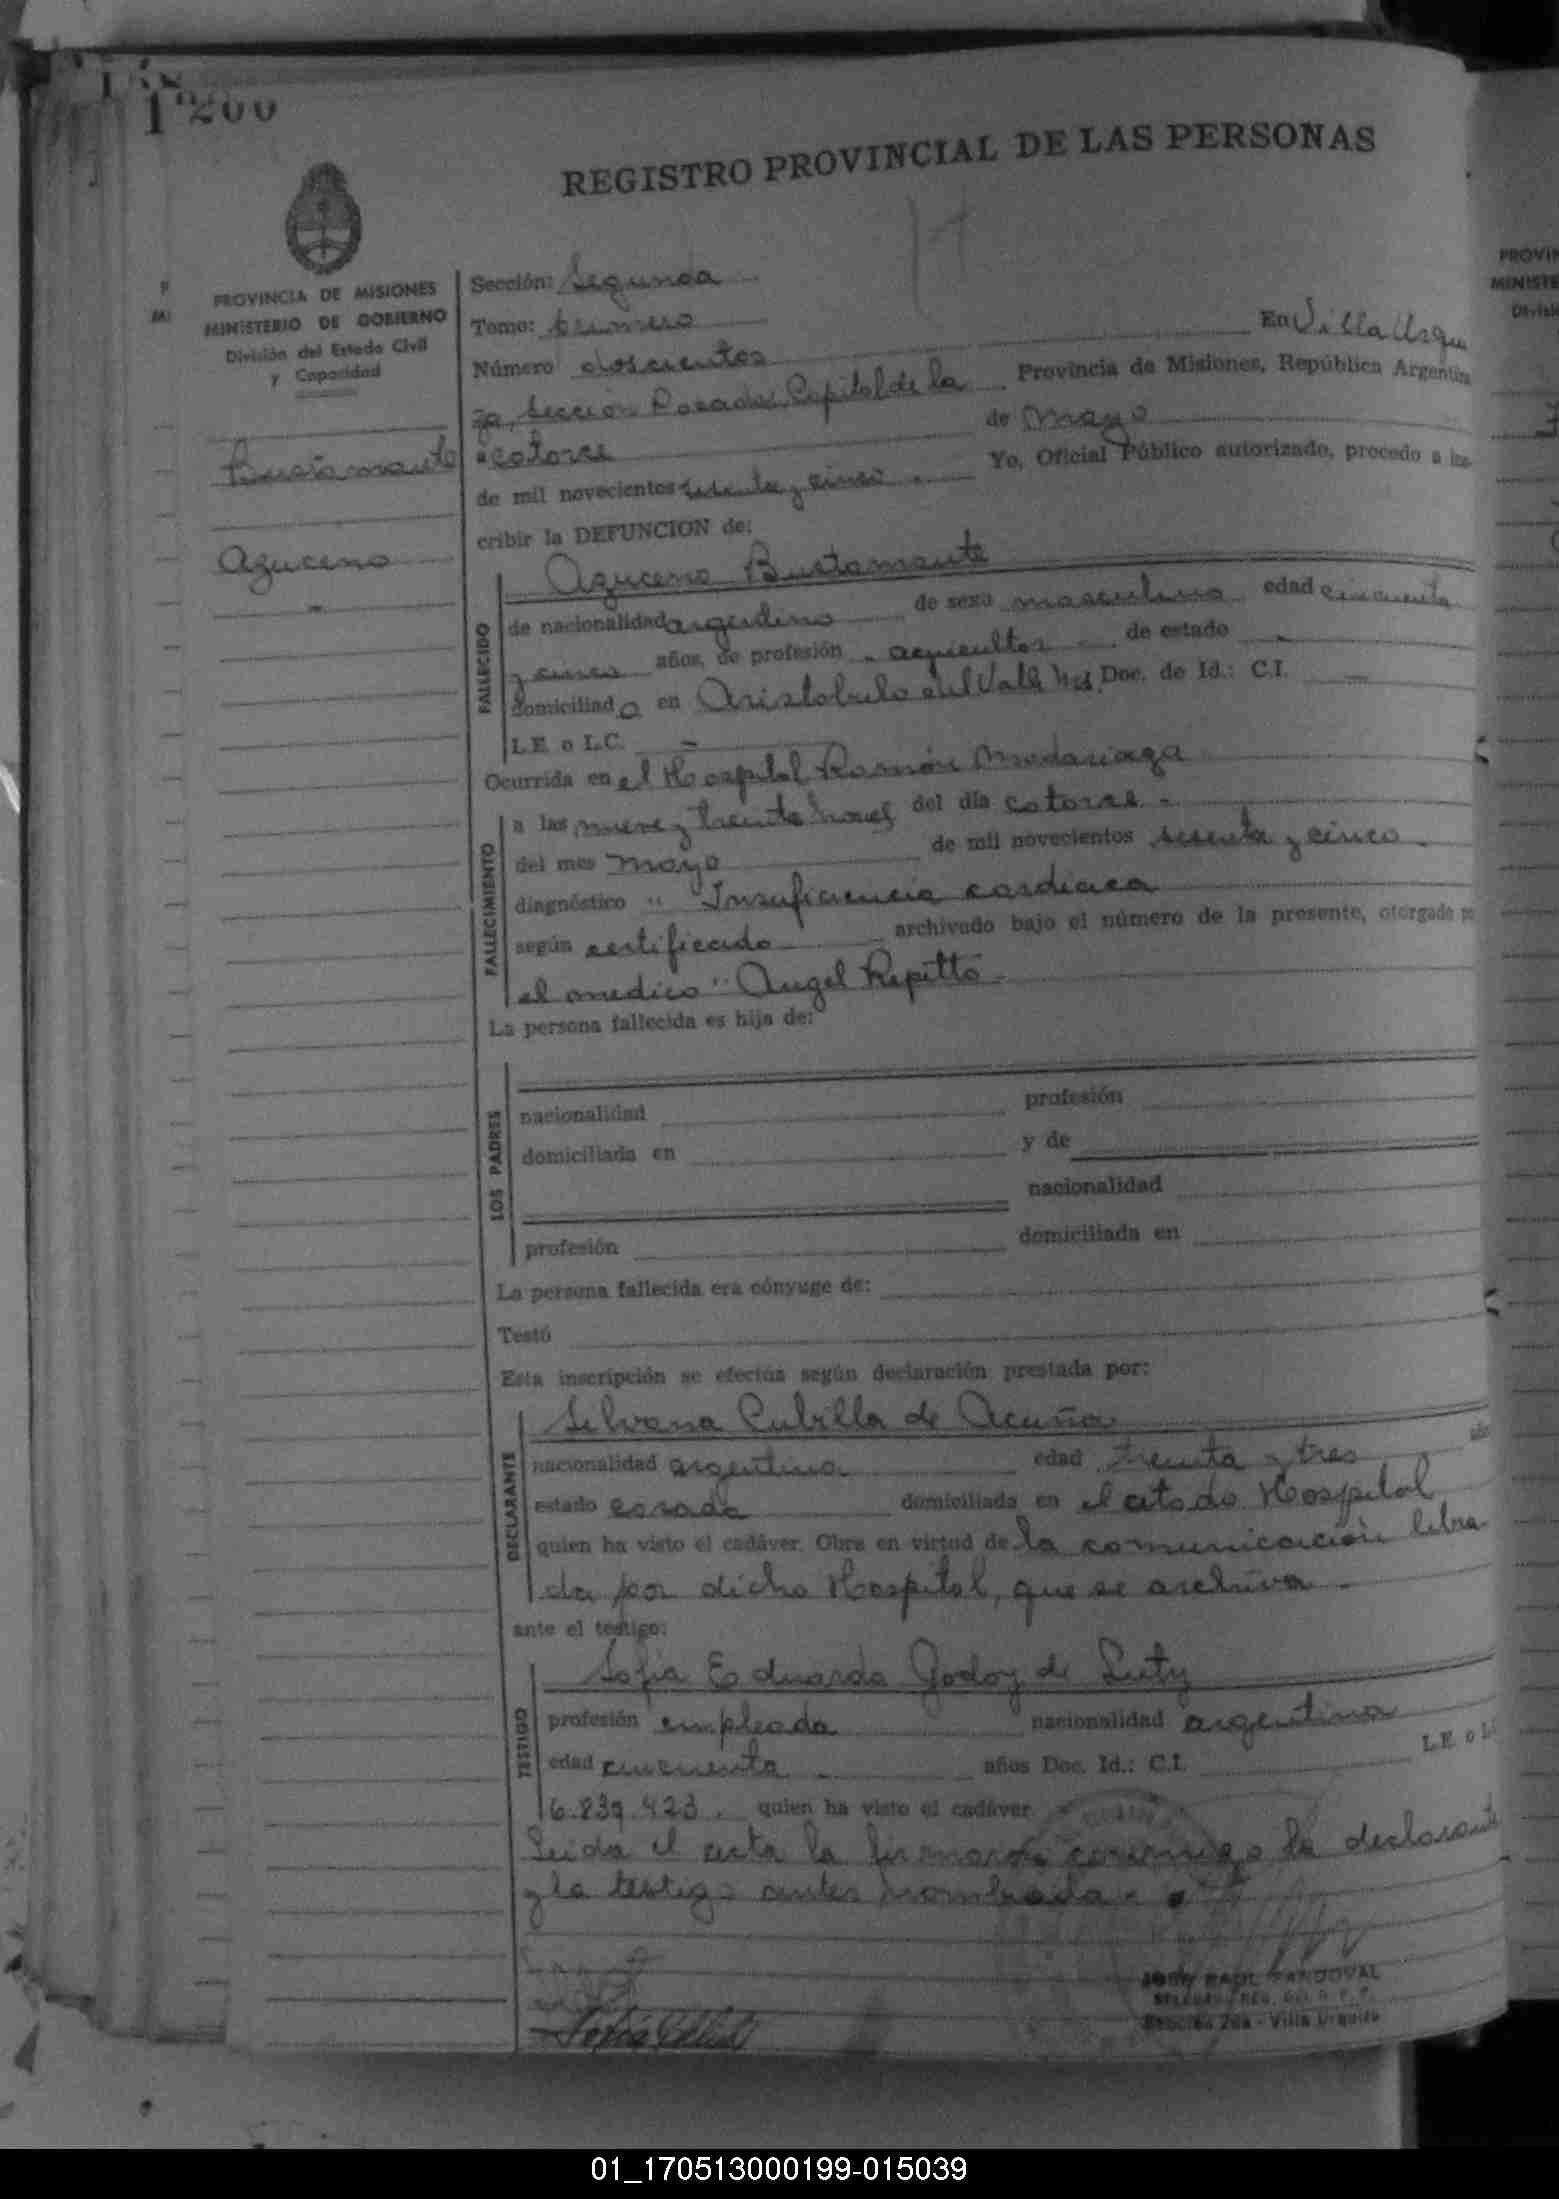 1º 200
REGISTRO PROVINCIAL DE LAS PERSONAS
PROVINCIA DE MISIONES
MINISTERIO DE GOBIERNO
División del Estado Civil
y Capacidad
Bustamante
Azuceno
Sección: Segunda
Tomo: primero
En Villa Urqui
Número doscientos
za, Sección Posadas Capital de la Provincia de Misiones, República Argentina
a catorce de Mayo
de mil novecientos sesenta y cinco. Yo, Oficial Público autorizado, procedo a ins-
cribir la DEFUNCION de:
FALLECIDO
Azuceno Bustamante
de nacionalidad argentino de sexo masculino edad cincuenta
y cinco años, de profesión agricultor de estado -
domiciliado en Aristobulo del Valle Mis. Doc. de Id.: C.I. —
L.E. o L.C. -
Ocurrida en el Hospital Ramón Madariaga
FALLECIMIENTO
a las nueve y treinta horas del día catorce.
del mes Mayo de mil novecientos sesenta y cinco.
diagnóstico " Insuficiencia cardiaca
según certificado archivado bajo el número de la presente, otorgado po
el medico " Angel Repitto.
La persona fallecida es hija de:
LOS PADRES
nacionalidad profesión
domiciliada en y de
nacionalidad
profesión domiciliada en
La persona fallecida era cónyuge de:
Testó
Esta inscripción se efectúa según declaración prestada por:
DECLARANTE
Silvana Cubilla de Acuña
nacionalidad argentina edad treinta y tres año
estado casada domiciliada en el citado Hospital
quien ha visto el cadáver. Obra en virtud de la comunicación libra
da por dicho Hospital, que se archiva.
ante el testigo:
TESTIGO
Sofia Eduarda Godoy de Luty
profesión empleada nacionalidad argentina
edad cincuenta años Doc. Id.: C.I. L.E. o L.
6.839.423. quien ha visto el cadáver
Leida el acta la firmaron conmigo la declarante
y la testigo antes nombrada.
JOSE RAUL SANDOVAL
Sección 2da - Villa Urquiza
PROVIN
MINISTE
Divisió
01_170513000199-015039